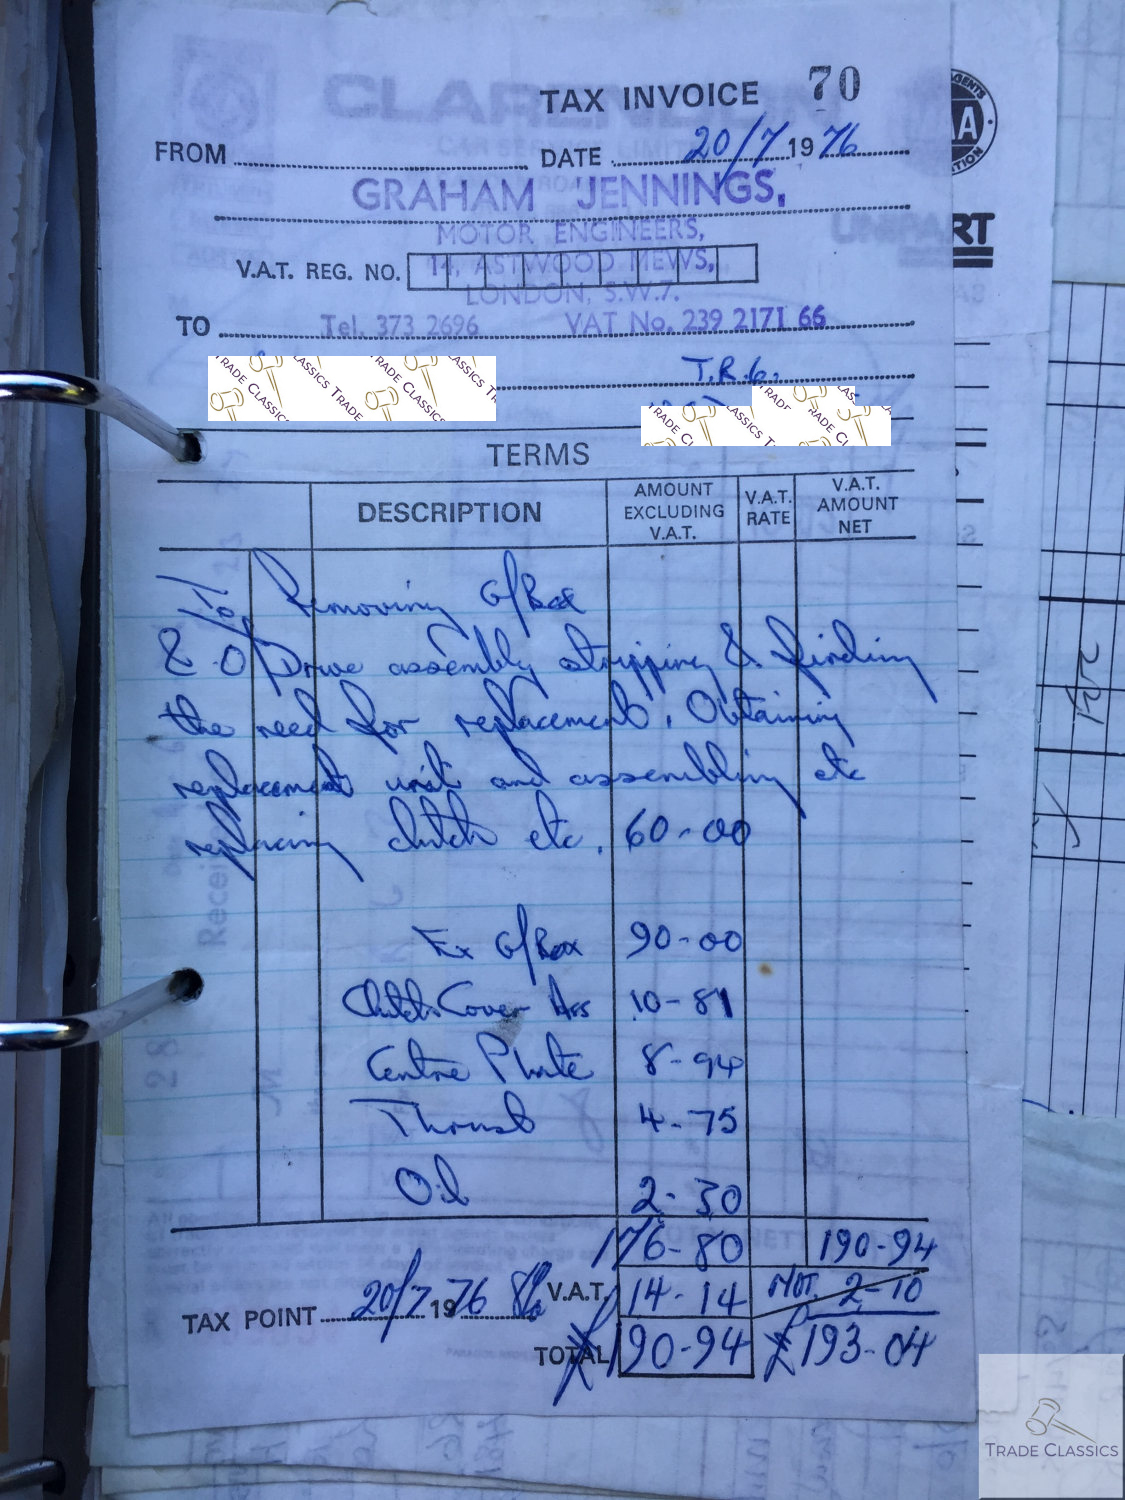 CLARENDON
TAX INVOICE 70
FROM DATE 20/7 1976
GRAHAM JENNINGS,
MOTOR ENGINEERS,
V.A.T. REG. NO. 14, ASTWOOD MEWS,
LONDON, S.W.7.
TO Tel. 373 2696 VAT No. 239 2171 66
UNIPART
T.R.6.
TERMS
DESCRIPTION AMOUNT EXCLUDING V.A.T. V.A.T. RATE V.A.T. AMOUNT NET
To Removing G/Box
& O/Drive assembly stripping & finding
the need for replacement. Obtaining
replacement unit and assembling etc
replacing clutch etc. 60-00
Ex G/Box 90-00
Clutch Cover Ass 10-81
Centre Plate 8-94
Thrust 4-75
Oil 2-30
176-80 190-94
TAX POINT 20/7 1976 8% V.A.T. 14-14 MOT. 2-10
TOTAL £190-94 £193-04
TRADE CLASSICS